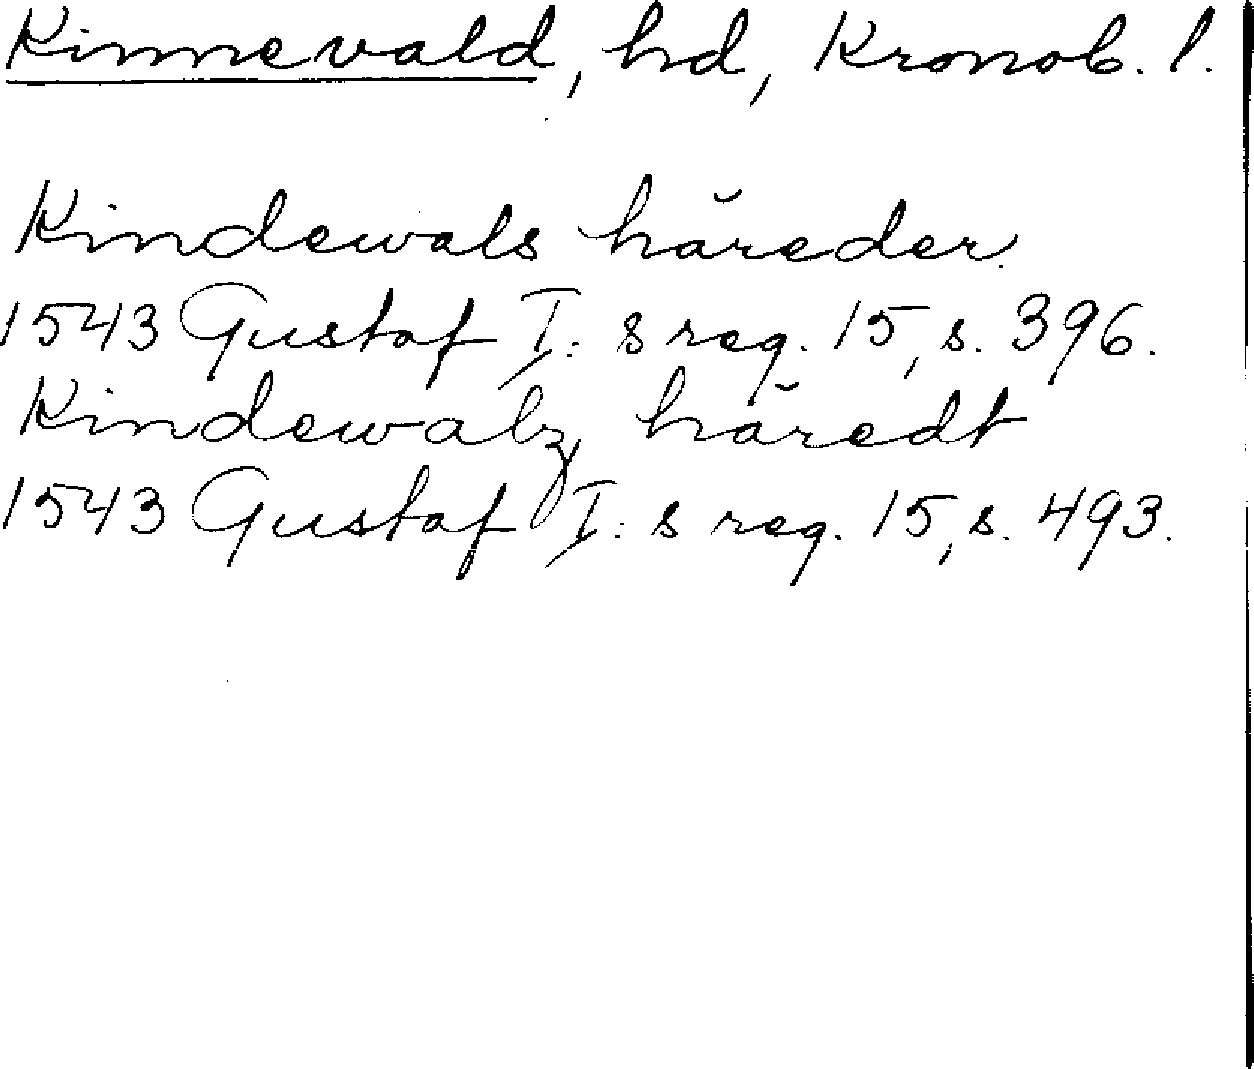 Kinnevald, hd, Kronob. l.
Kindewals häreder.
1543 Gustaf I:s reg. 15, s. 396.
Kindewalz häredt
1543 Gustaf I:s reg. 15, s. 493.